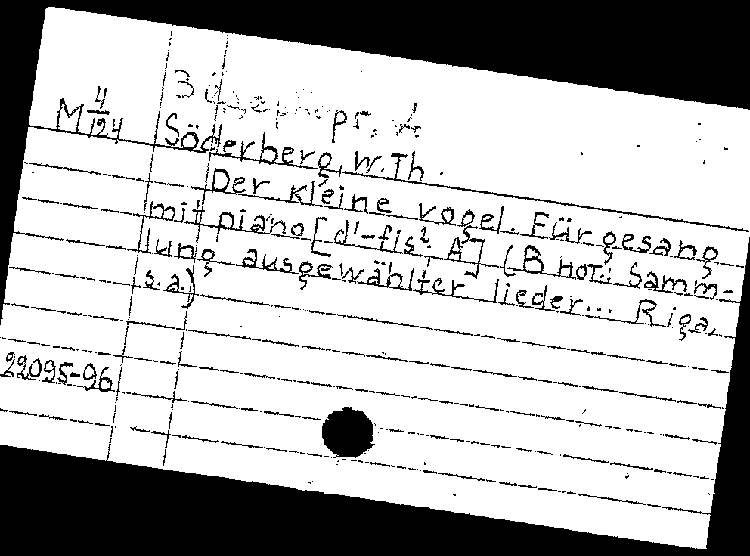 M 4/124
Söderberg, W. Th.
Der kleine vogel. Für gesang
mit piano [d'-fis², A] (В нот.: Samm-
lung ausgewählter lieder... Riga,
s. a.)
22095-96